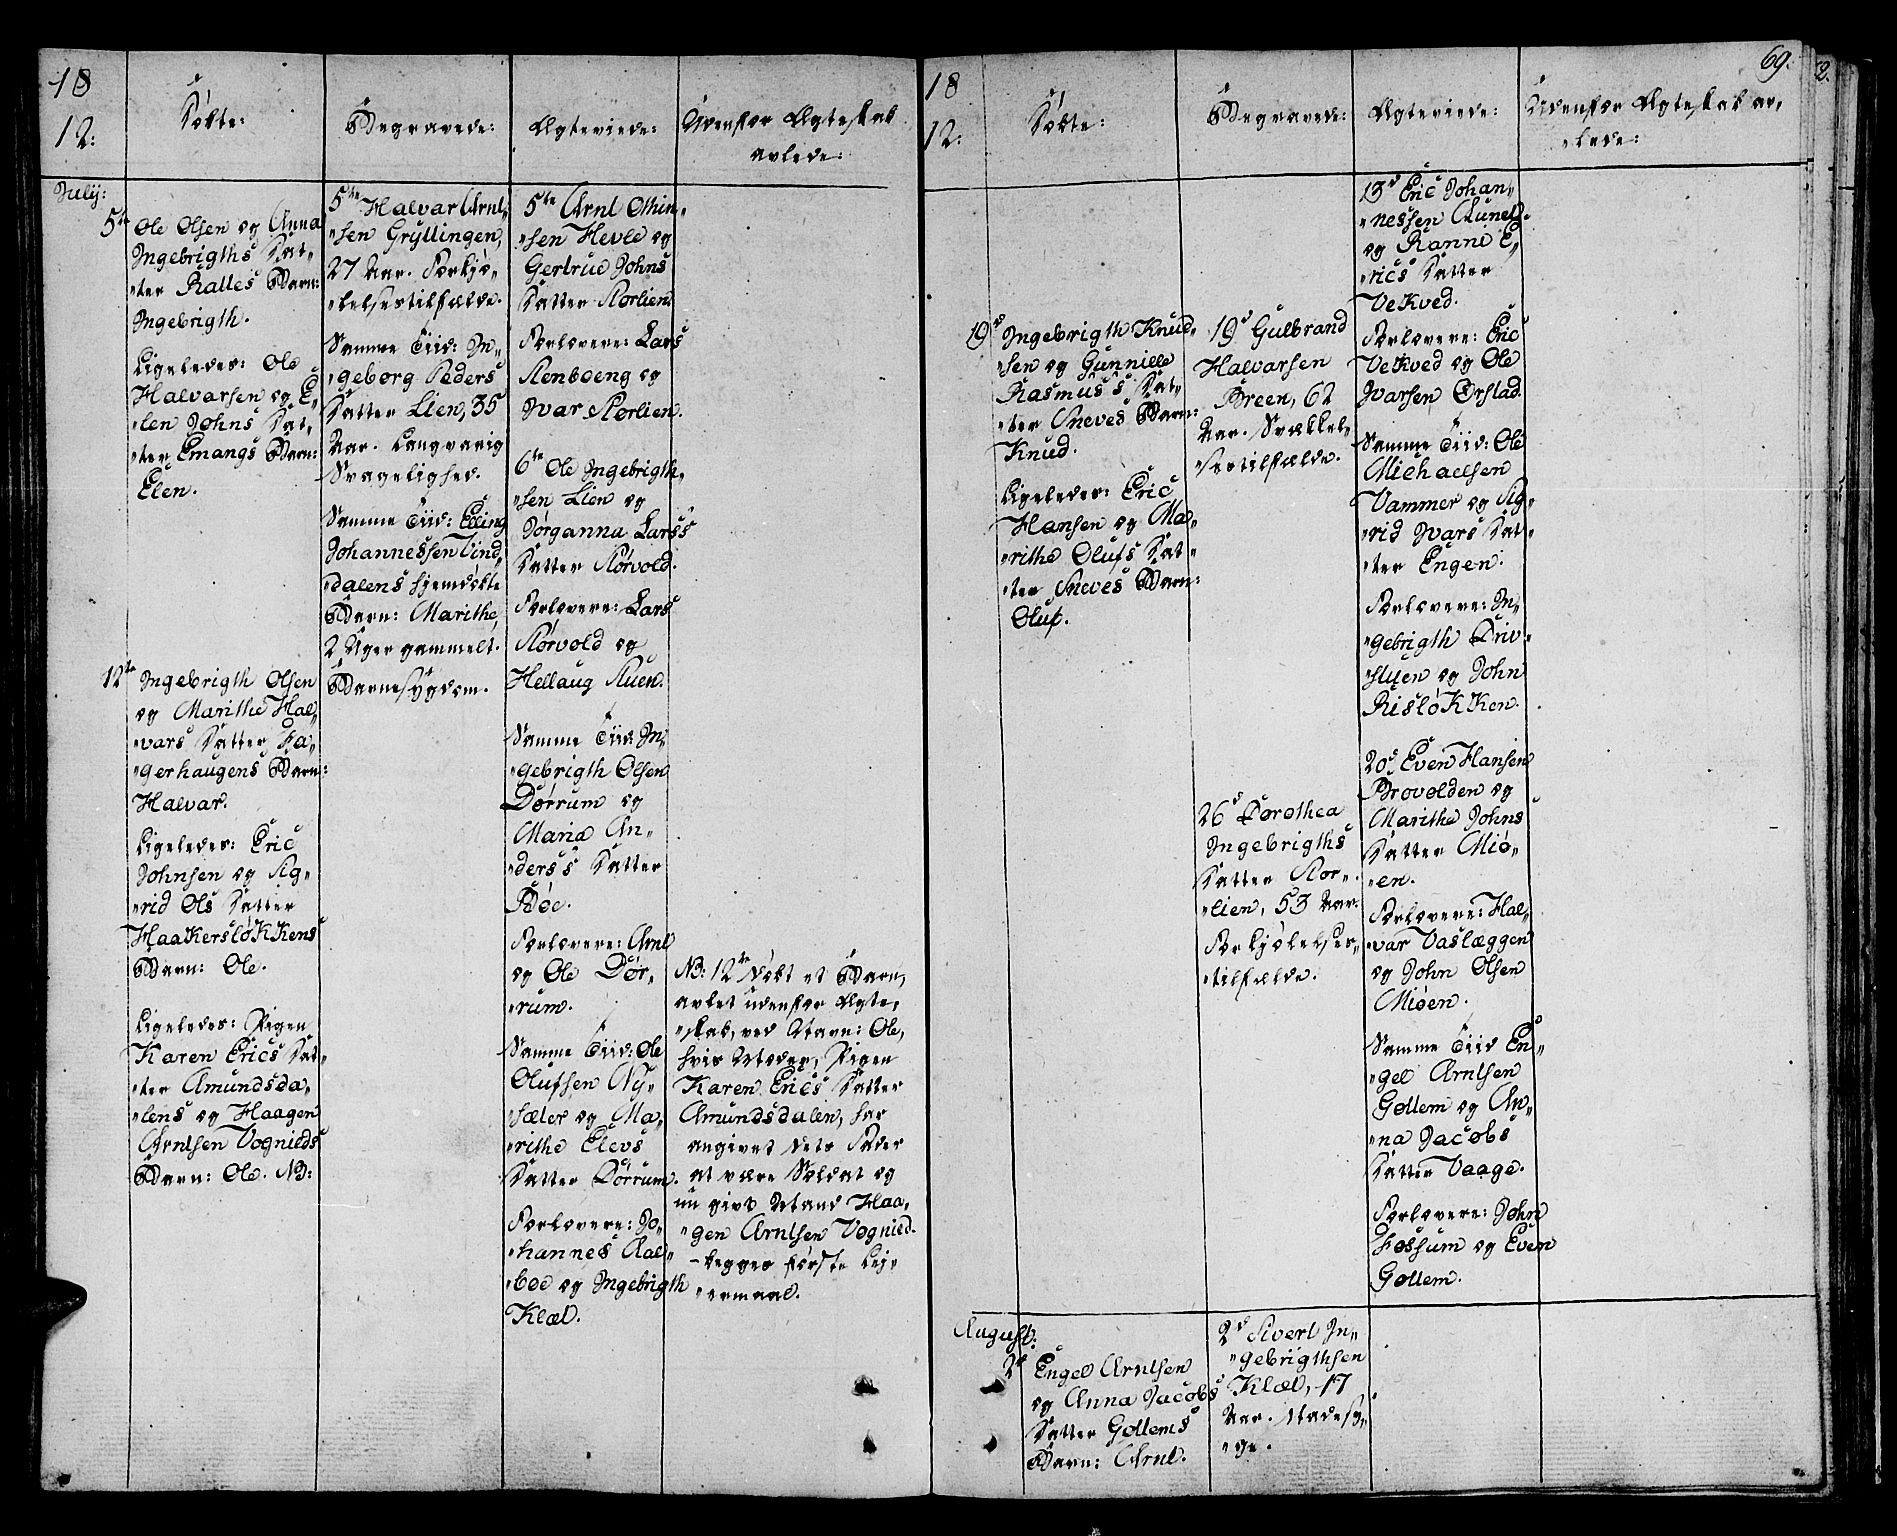 18
12:
Døbte:
Begravede:
Ægteviede:
Udenfor Ægteskab
avlede:
July:
5te
Ole Olsen og Anna
Ingebrigths Dat„
„ter Ralles Barn:
Ingebrigth.
Ligeledes: Ole
Halvarsen og E„
„len Johns Dat„
„ter Emangs Barn:
Elen.
12te
Ingebrigth Olsen
og Marithe Hal„
„vars Datter Fa„
„gerhaugens Barn:
Halvar.
Ligeledes: Eric
Johnsen og Sig„
„rid Ols Datter
Haakersløkkens
Barn: Ole.
Ligeledes: Pigen
Karen Erics Dat„
„ter Amundsda„
„lens og Haagen
Arntsen Vognilds
Barn: Ole. NB:
5te Halvar Arnt„
„sen Gryllingen,
27 Aar. Forkjø„
„lelsestilfælde.
Samme Tiid: In„
„geborg Peders
Datter Lien, 35
Aar. Langvarig
Svagelighed.
Samme Tiid: Elling
Johannessen Vind„
„dalens hjemdøbte
Barn: Marithe,
2 Uger gammelt.
Barnesygdom.
5te Arnt Othin„
„sen Hevle og
Gertrud Johns
Datter Storlien.
Forlovere: Lars
Stenboeng og
Ivar Storlien.
6te Ole Ingebrigth„
„sen Lien og
Jørganna Larss
Datter Storvold.
Forlovere: Lars
Storvold og
Hellaug Stuen.
Samme Tiid In„
„gebrigth Olsen
Dørrum og
Maria An„
„derss Datter
Bøe.
Forlovere: Arnt
og Ole Dør„
„rum.
Samme Tiid: Ole
Olufsen Ny„
„sæter og Ma„
„rithe Elevs
Datter Dørrum.
Forlovere: Jo„
„hannes Aal„
„boe og Ingebrigth
Klæt.
NB: 12te Døbt et Barn,
avlet udenfor Ægte„
„skab, ved Navn: Ole,
hvis Moder, Pigen
Karen Erics Datter
Amundsdalen, har
angivet dets Fader
at være Soldat og
nu givt Mand Haa„
„gen Arntsen Vognild.
-begges første Lej„
„ermaal.
18
12:
Døbte:
Begravede:
Ægteviede:
Udenfor Ægteskab av„
„lede:
69.
2.
19d
Ingebrigth Knud„
„sen og Gunnille
Rasmuss Dat„
„ter Sneves Barn:
Knud.
Ligeledes: Eric
Hansen og Ma„
„rithe Olufs Dat„
„ter Sneves Barn:
Oluf.
19d Gulbrand
Halvarsen
Breen, 62
Aar. Svækkel„
„sestilfælde.
26d Dorothea
Ingebrigths
Datter Stor„
„lien, 53 Aar.
Forkjølelses„
„tilfælde.
13d Eric Johan„
„nessen Aunet
og Ranni E„
„rics Datter
Vekved.
Forlovere: Eric
Vekved og Ole
Ivarsen Ørstad.
Samme Tiid: Ole
Michaelsen
Vammer og Sig„
„rid Ivars Dat„
„ter Engen.
Forlovere: In„
„gebrigth Driv„
„stuen og John
Risløkken.
20d Even Hansen
Brovolden og
Marithe Johns
Datter Miø„
„en.
Forlovere: Hal„
„var Vaslæggen
og John Olsen
Miøen.
Samme Tiid En„
„gel Arntsen
Gollem og An„
„na Jacobs
Datter Vaage.
Forlovere: John
Fossum og Even
Gollem.
August:
2d
Engel Arntsen
og Anna Jacobs
Datter Gollems
Barn: Arnt.
2d Sivert In„
„gebrigthsen
Klæt, 17
Aar. Madesy„
„ge.